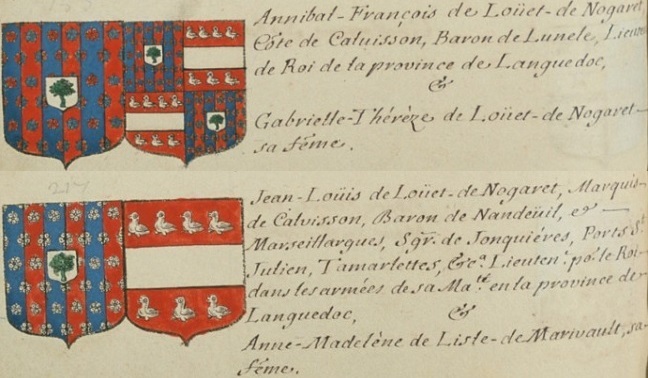 Annibal-François de Loüet-de Nogaret
Côte de Calvisson, Baron de Lunele, Lieuten
de Roi de la province de Languedoc,
&
Gabrielle-Thérèze de Loüet-de Nogaret
sa fême.
217
Jean-Loüis de Loüet-de Nogaret, Marquis
de Calvisson, Baron de Nandeüil, e
Marseillargues, Sgr. de Jonquiéres, Ports St.
Julien, Tamarlettes, &c.ª Lieuten.t po.r le Roi
dans les armées de sa Ma.té en la province de
Languedoc, &
Anne-Madelène de Liste-de Marivault, sa
fême.